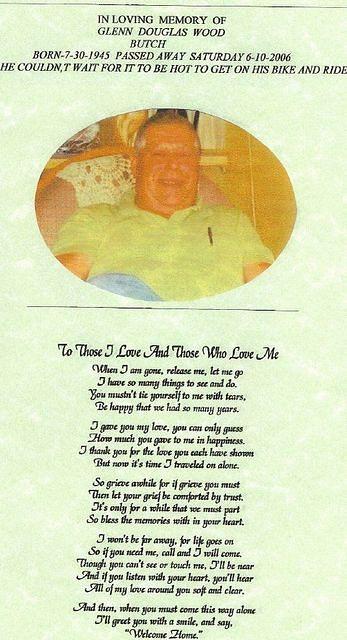 IN LOVING MEMORY OF
GLENN DOUGLAS WOOD
BUTCH
BORN-7-30-1945 PASSED AWAY SATURDAY 6-10-2006
HE COULDN,T WAIT FOR IT TO BE HOT TO GET ON HIS BIKE AND RIDE
To Those I Love And Those Who Love Me
When I am gone, release me, let me go
I have so many things to see and do.
You mustn't tie yourself to me with tears,
Be happy that we had so many years.
I gave you my love, you can only guess
How much you gave to me in happiness.
I thank you for the love you each have shown
But now it's time I traveled on alone.
So grieve awhile for if grieve you must
Then let your grief be comforted by trust.
It's only for a while that we must part
So bless the memories with in your heart.
I won't be far away, for life goes on
So if you need me, call and I will come.
Though you can't see or touch me, I'll be near
And if you listen with your heart, you'll hear
All of my love around you soft and clear.
And then, when you must come this way alone
I'll greet you with a smile, and say,
"Welcome Home."